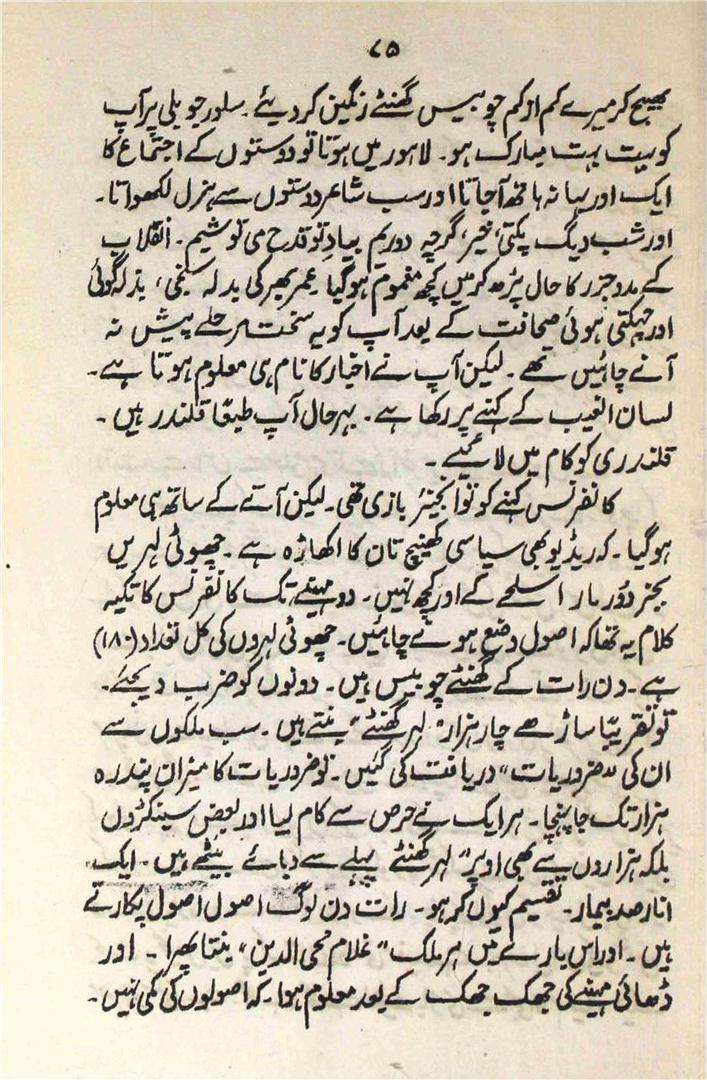 ۷۵
بھیج کر میرے کم از کم چوبیس گھنٹے رنگین کر دیئے۔ سلور جوبلی پر آپ
کو بہت بہت مبارک ہو۔ لاہور میں ہوتا تو دوستوں کے اجتماع کا
ایک اور بہانہ ہاتھ آجاتا اور سب شاعر دوستوں سے ہزل لکھواتا۔
اور شب دیگ پکتی، خیر، گرچہ دوریم بیادِ تو قدح می نوشیم۔ انقلاب
کے مدوجزر کا حال پڑھ کر میں کچھ مغموم ہوگیا عمر بھر کی بذلہ سنجی، بذلہ گوئی
اور چہکتی ہوئی صحافت کے بعد آپ کو یہ سخت مرحلے پیش نہ
آنے چاہئیں تھے۔ لیکن آپ نے اخبار کا نام ہی معلوم ہوتا ہے۔
لسان الغیب کے کہنے پر رکھا ہے۔ بہرحال آپ طبعًا قلندر ہیں۔
قلندری کو کام میں لائیے۔
کانفرنس کہنے کو تو انجینئر بازی تھی۔ لیکن آتے کے ساتھ ہی معلوم
ہوگیا۔ کہ ریڈیو بھی سیاسی کھینچ تان کا اکھاڑہ ہے۔ چھوٹی لہریں
بجز دُور مار اسلحے کے اور کچھ نہیں۔ دو مہینے تک کانفرنس کا تکیہ
کلام یہ تھا کہ اصول وضع ہونے چاہئیں۔ چھوٹی لہروں کی کل تعداد (۱۸۰)
ہے۔ دن رات کے گھنٹے چوبیس ہیں۔ دونوں کو ضرب دیجئے۔
تو تقریبًا ساڑھے چار ہزار "لہر گھنٹے" بنتے ہیں۔ سب ملکوں سے
ان کی "ضروریات" دریافت کی گئیں۔ تو ضروریات کا میزان پندرہ
ہزار تک جا پہنچا۔ ہر ایک نے حرص سے کام لیا اور بعض سینکڑوں
بلکہ ہزاروں سے بھی اوپر "لہر گھنٹے" پہلے سے دبائے بیٹھے ہیں۔ ایک
انار صد بیمار۔ تقسیم کیوں کر ہو۔ رات دن لوگ اصول اصول پکارتے
ہیں۔ اور اس بارے میں ہر ملک "غلام محی الدین" بنتا پھرا۔ اور
ڈھائی مہینے کی جھک جھک کے بعد معلوم ہوا۔ کہ اصولوں کی کمی نہیں۔